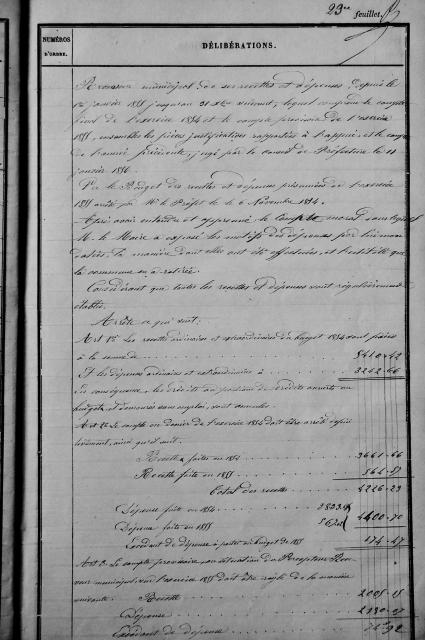 23me feuillet
NUMÉROS
D'ORDRE.
DÉLIBÉRATIONS.
municipal de ses recettes et dépenses depuis le
1er janvier 1855 jusqu'au 31 Xbre suivant, lequel comprend le compte
final de l'exercice 1854 et le compte provisoire de l'exercice
1855, ensembles les pièces justificatives rapportées à l'appui, et le compte
de l'année précédente, jugé par le conseil de Préfecture le 11
janvier 1856.
Vu le Budget des recettes et dépenses présumées de l'exercice
1855 arrêté par Mr le Préfet le 6 Novembre 1854.
Après avoir entendu et approuvé le compte moral dans lequel
M. le Maire a exposé les motifs des dépenses
la manière dont elles ont été effectuées, et l'utilité que
la commune en a retirée.
Considérant que toutes les recettes et dépenses sont régulièrement
établies.
Arrête ce qui suit:
Art 1er Les recettes ordinaires et extraordinaires du budget 1854 sont fixées
à la somme de
Et les dépenses ordinaires et extraordinaires à
En conséquence, les crédits ou portions de crédits ouverts au
budget et demeurés sans emploi, sont annulés.
Art 2 Le compte en deniers de l'exercice 1854 doit être arrêté
ainsi qu'il suit.
Recette faite en 1854 3661-66
Recette faite en 1855 564-57
Total des recettes 4226-23
Dépense faite en 1854
Dépense faite en 1855 4400-70
Excédant de dépense à porter au budget de 1855 174-47
Art 3. Le compte provisoire par situation du Percepteur Rece
veur municipal, sur l'exercice 1855 doit être réglé de la manière
suivante. Recette
Dépense
Excédant de dépense